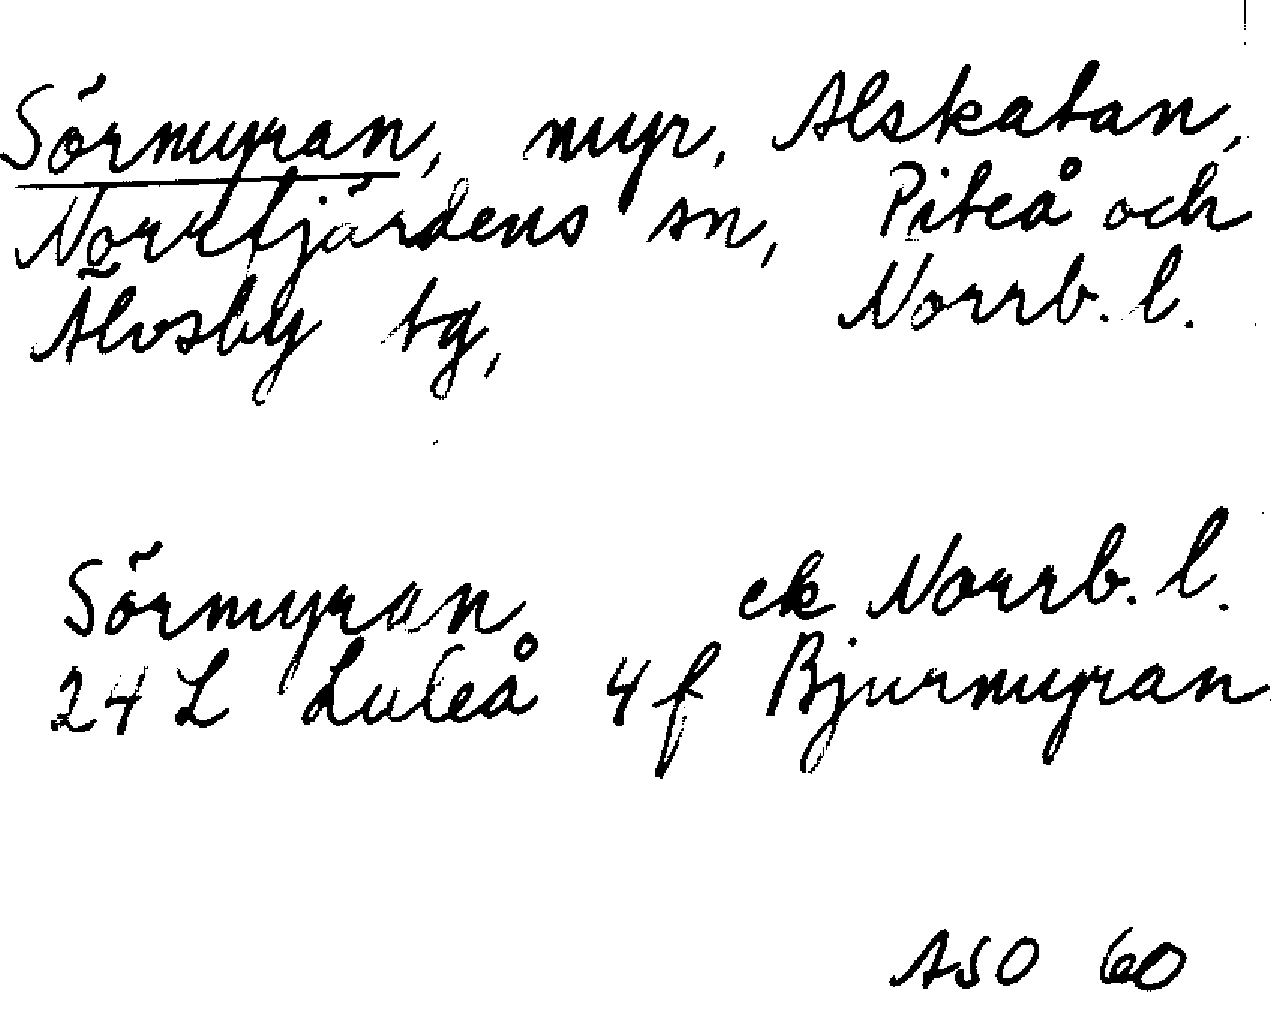 Sörmyran, myr, Alskatan,
Norrfjärdens sn, Piteå och
Älvsby tg, Norrb. l.
Sörmyran ek Norrb. l.
24 L Luleå 4 f Bjurmyran
ASO 60